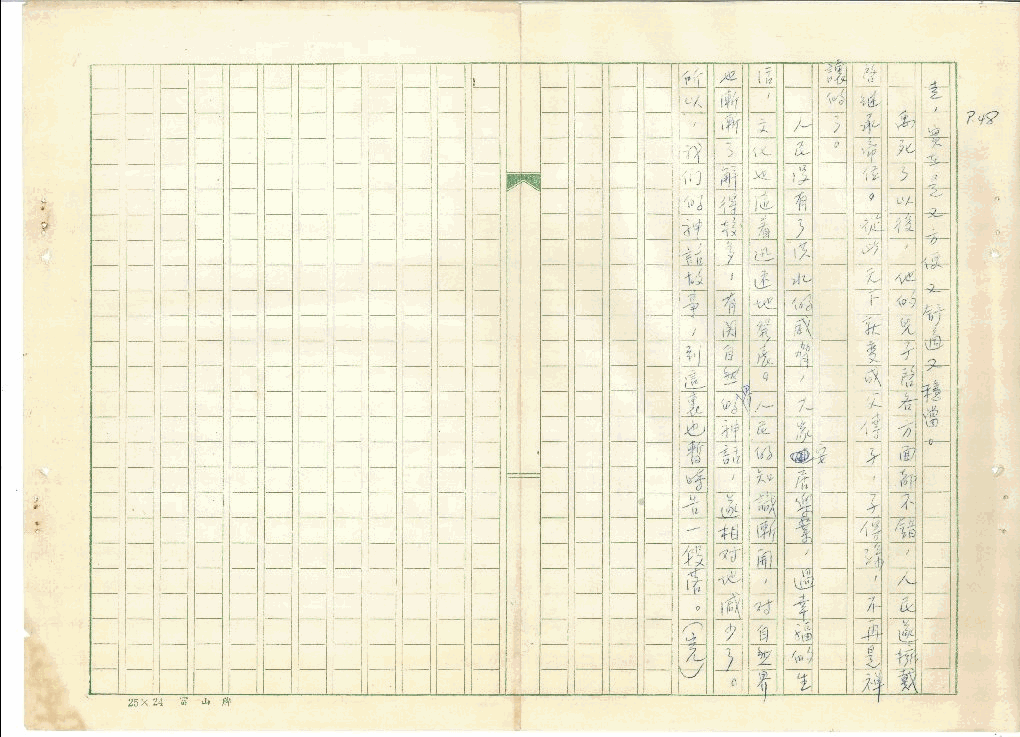 P.48
走，實在是又方便又舒適又穩當。
禹死了以後，他的兒子啓各方面都不錯，人民遂擁戴
啓繼承帝位。從此天下就變成父傳子，子傳孫，不再是禅
讓的了。
人民沒有了洪水的威脅，大家安居樂業，過幸福的生
活，文化也隨着迅速地發展。人民的知識漸開，對自然界
也漸漸了解得較多，有关自然界的神話，遂相对地減少了。
所以，我们的神話故事，到這裏也暫時告一段落。（完）
25×24 富山牌